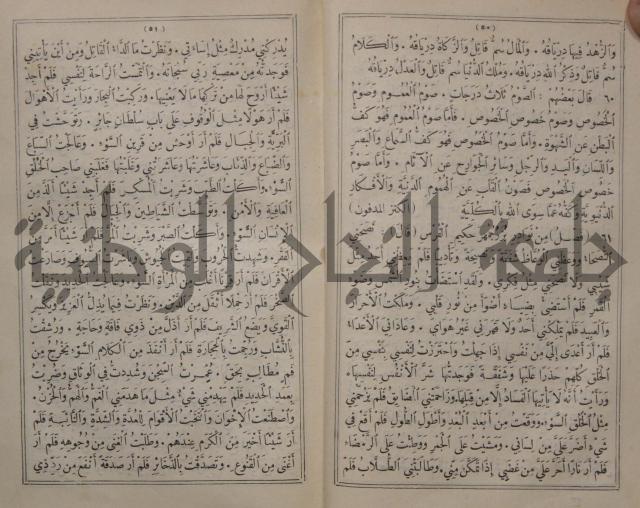 (٥٠)
وَالزُّهْدُ فِيهَا دِرْيَاقُهُ ۰ وَالْمَالُ سُمٌّ قَاتِلٌ وَالزَّكَاةُ دِرْيَاقُهُ ۰ وَالْكَلَامُ
سُمٌّ قَاتِلٌ وَذِكْرُ اللهِ دِرْيَاقُهُ ۰ وَمُلْكُ الدُّنْيَا سُمٌّ قَاتِلٌ وَالْعَدْلُ دِرْيَاقُهُ
٦٠ قَالَ بَعْضُهُمْ ۰ الصَّوْمُ ثَلَاثُ دَرَجَاتٍ ۰ صَوْمُ الْعُمُومِ وَصَوْمُ
الْخُصُوصِ وَصَوْمُ خُصُوصِ الْخُصُوصِ ۰ فَأَمَّا صَوْمُ الْعُمُومِ فَهُوَ كَفُّ
الْبَطْنِ عَنِ الشَّهْوَةِ ۰ وَأَمَّا صَوْمُ الْخُصُوصِ فَهُوَ كَفُّ السَّمَاعِ وَالْبَصَرِ
وَاللِّسَانِ وَالْيَدِ وَالرِّجْلِ وَسَائِرِ الْجَوَارِحِ عَنِ الْآثَامِ ۰ وَأَمَّا صَوْمُ
خُصُوصِ الْخُصُوصِ فَصَوْنُ الْقَلْبِ عَنِ الْهُمُومِ الدَّنِيَّةِ وَالْأَفْكَارِ
الدُّنْيَوِيَّةِ وَكَفُّهُ عَمَّا سِوَى اللهِ بِالْكُلِّيَّةِ (الكنز المدفون)
٦١ (فصل) مِنْ حَكِيمِ الْفُرْسِ قَالَ نَصَحَنِي
النُّصَحَاءُ وَوَعَظَنِي الْوُعَّاظُ شَفَقَةً وَنَصِيحَةً وَتَأْدِيبًا فَلَمْ يَعِظْنِي أَحَدٌ مِثْلُ
شَيْبِي وَلَا نَصَحَنِي مِثْلُ فِكْرِي ۰ وَلَقَدِ اسْتَضَأْتُ بِنُورِ الشَّمْسِ وَضَوْءِ
الْقَمَرِ فَلَمْ أَسْتَضِئْ بِضِيَاءٍ أَضْوَأَ مِنْ نُورِ قَلْبِي ۰ وَمَلَكْتُ الْأَحْرَارَ
وَالْعَبِيدَ فَلَمْ يَمْلِكْنِي أَحَدٌ وَلَا قَهَرَنِي غَيْرُ هَوَايَ ۰ وَعَادَانِي الْأَعْدَاءُ
فَلَمْ أَرَ أَعْدَى إِلَيَّ مِنْ نَفْسِي إِذَا جَهِلْتُ وَاحْتَرَزْتُ لِنَفْسِي بِنَفْسِي مِنَ
الْخَلْقِ كُلِّهِمْ حَذَرًا عَلَيْهَا وَشَفَقَةً ۰ فَوَجَدْتُهَا شَرَّ الْأَنْفُسِ لِنَفْسِهَا
وَرَأَيْتُ أَنَّهُ لَا يَأْتِيهَا الْفَسَادُ إِلَّا مِنْ قِبَلِهَا وَزَاحَمَتْنِي الْمَضَايِقُ فَلَمْ يَزْحَمْنِي
مِثْلُ الْخُلْقِ السُّوءِ ۰ وَوَقَعْتُ مِنْ أَبْعَدِ الْبُعْدِ وَأَطْوَلِ الطُّولِ فَلَمْ أَقَعْ فِي
شَيْءٍ أَضَرَّ عَلَيَّ مِنْ لِسَانِي ۰ وَمَشَيْتُ عَلَى الْجَمْرِ وَوَطِئْتُ عَلَى الرَّمْضَاءِ
فَلَمْ أَرَ نَارًا أَحَرَّ عَلَيَّ مِنْ غَضَبِي إِذَا تَمَكَّنَ مِنِّي ۰ وَطَالَبَتْنِي الطُّلَّابُ فَلَمْ
(٥١)
يُدْرِكْنِي مُدْرِكٌ مِثْلُ إِسَاءَتِي ۰ وَنَظَرْتُ مَا الدَّاءُ الْقَاتِلُ وَمِنْ أَيْنَ يَأْتِينِي
فَوَجَدْتُهُ مِنْ مَعْصِيَةِ رَبِّي سُبْحَانَهُ ۰ وَالْتَمَسْتُ الرَّاحَةَ لِنَفْسِي فَلَمْ أَجِدْ
شَيْئًا أَرْوَحَ لَهَا مِنْ تَرْكِهَا مَا لَا يَعْنِيهَا ۰ وَرَكِبْتُ الْبِحَارَ وَرَأَيْتُ الْأَهْوَالَ
فَلَمْ أَرَ هَوْلًا مِثْلَ الْوُقُوفِ عَلَى بَابِ سُلْطَانٍ جَائِرٍ ۰ وَتَوَحَّشْتُ فِي
الْبَرِّيَّةِ وَالْجِبَالِ فَلَمْ أَرَ أَوْحَشَ مِنْ قَرِينِ السُّوءِ ۰ وَعَالَجْتُ السِّبَاعَ
وَالضِّبَاعَ وَالذِّئَابَ وَعَاشَرْتُهَا وَعَاشَرَتْنِي وَغَلَبْتُهَا فَغَلَبَنِي صَاحِبُ الْخُلْقِ
السُّوءِ ۰ وَأَكَلْتُ الطَّيِّبَ وَشَرِبْتُ الْمُسْكِرَ فَلَمْ أَجِدْ شَيْئًا أَلَذَّ مِنَ
الْعَافِيَةِ وَالْأَمْنِ ۰ وَتَوَسَّطْتُ الشَّيَاطِينَ وَالْجِبَالَ فَلَمْ أَجْزَعْ إِلَّا مِنَ
الْإِنْسَانِ السُّوءِ ۰ وَأَكَلْتُ الصَّبْرَ وَشَرِبْتُ الْمُرَّ فَلَمْ أَرَ شَيْئًا أَمَرَّ مِنَ
الْفَقْرِ ۰ وَشَهِدْتُ الْحُرُوبَ وَلَقِيتُ الْجُيُوشَ وَبَاشَرْتُ السُّيُوفَ وَصَارَعْتُ
الْأَقْرَانَ فَلَمْ أَرَ قِرْنًا أَغْلَبَ مِنَ الْمَرْأَةِ السُّوءِ ۰ وَعَالَجْتُ الْحَدِيدَ وَنَقَلْتُ
الصَّخْرَ فَلَمْ أَرَ حِمْلًا أَثْقَلَ مِنَ الدَّيْنِ ۰ وَنَظَرْتُ فِيمَا يُذِلُّ الْعَزِيزَ وَيَكْسِرُ
الْقَوِيَّ وَيَضَعُ الشَّرِيفَ فَلَمْ أَرَ أَذَلَّ مِنْ ذَوِي فَاقَةٍ وَحَاجَةٍ ۰ وَرُشِقْتُ
بِالنُّشَّابِ وَرُجِمْتُ بِالْحِجَارَةِ فَلَمْ أَرَ أَنْفَذَ مِنَ الْكَلَامِ السُّوءِ يَخْرُجُ مِنْ
فَمِ مُطَالِبٍ بِحَقٍّ ۰ وَعُمِّرْتُ السِّجْنَ وَشُدِدْتُ فِي الْوَثَاقِ وَضُرِبْتُ
بِعَمَدِ الْحَدِيدِ فَلَمْ يَهْدِمْنِي شَيْءٌ مِثْلُ مَا هَدَمَنِي الْغَمُّ وَالْهَمُّ وَالْحُزْنُ ۰
وَاصْطَنَعْتُ الْإِخْوَانَ وَانْتَخَبْتُ الْأَقْوَامَ لِلْعُدَّةِ وَالشِّدَّةِ وَالنَّائِبَةِ فَلَمْ
أَرَ شَيْئًا أَخْيَرَ مِنَ الْكَرَمِ عِنْدَهُمْ ۰ وَطَلَبْتُ الْغِنَى مِنْ وُجُوهِهِ فَلَمْ أَرَ
أَغْنَى مِنَ الْقُنُوعِ ۰ وَتَصَدَّقْتُ بِالذَّخَائِرِ فَلَمْ أَرَ صَدَقَةً أَنْفَعَ مِنْ رَدِّ ذِي
جامعة النجاح الوطنية